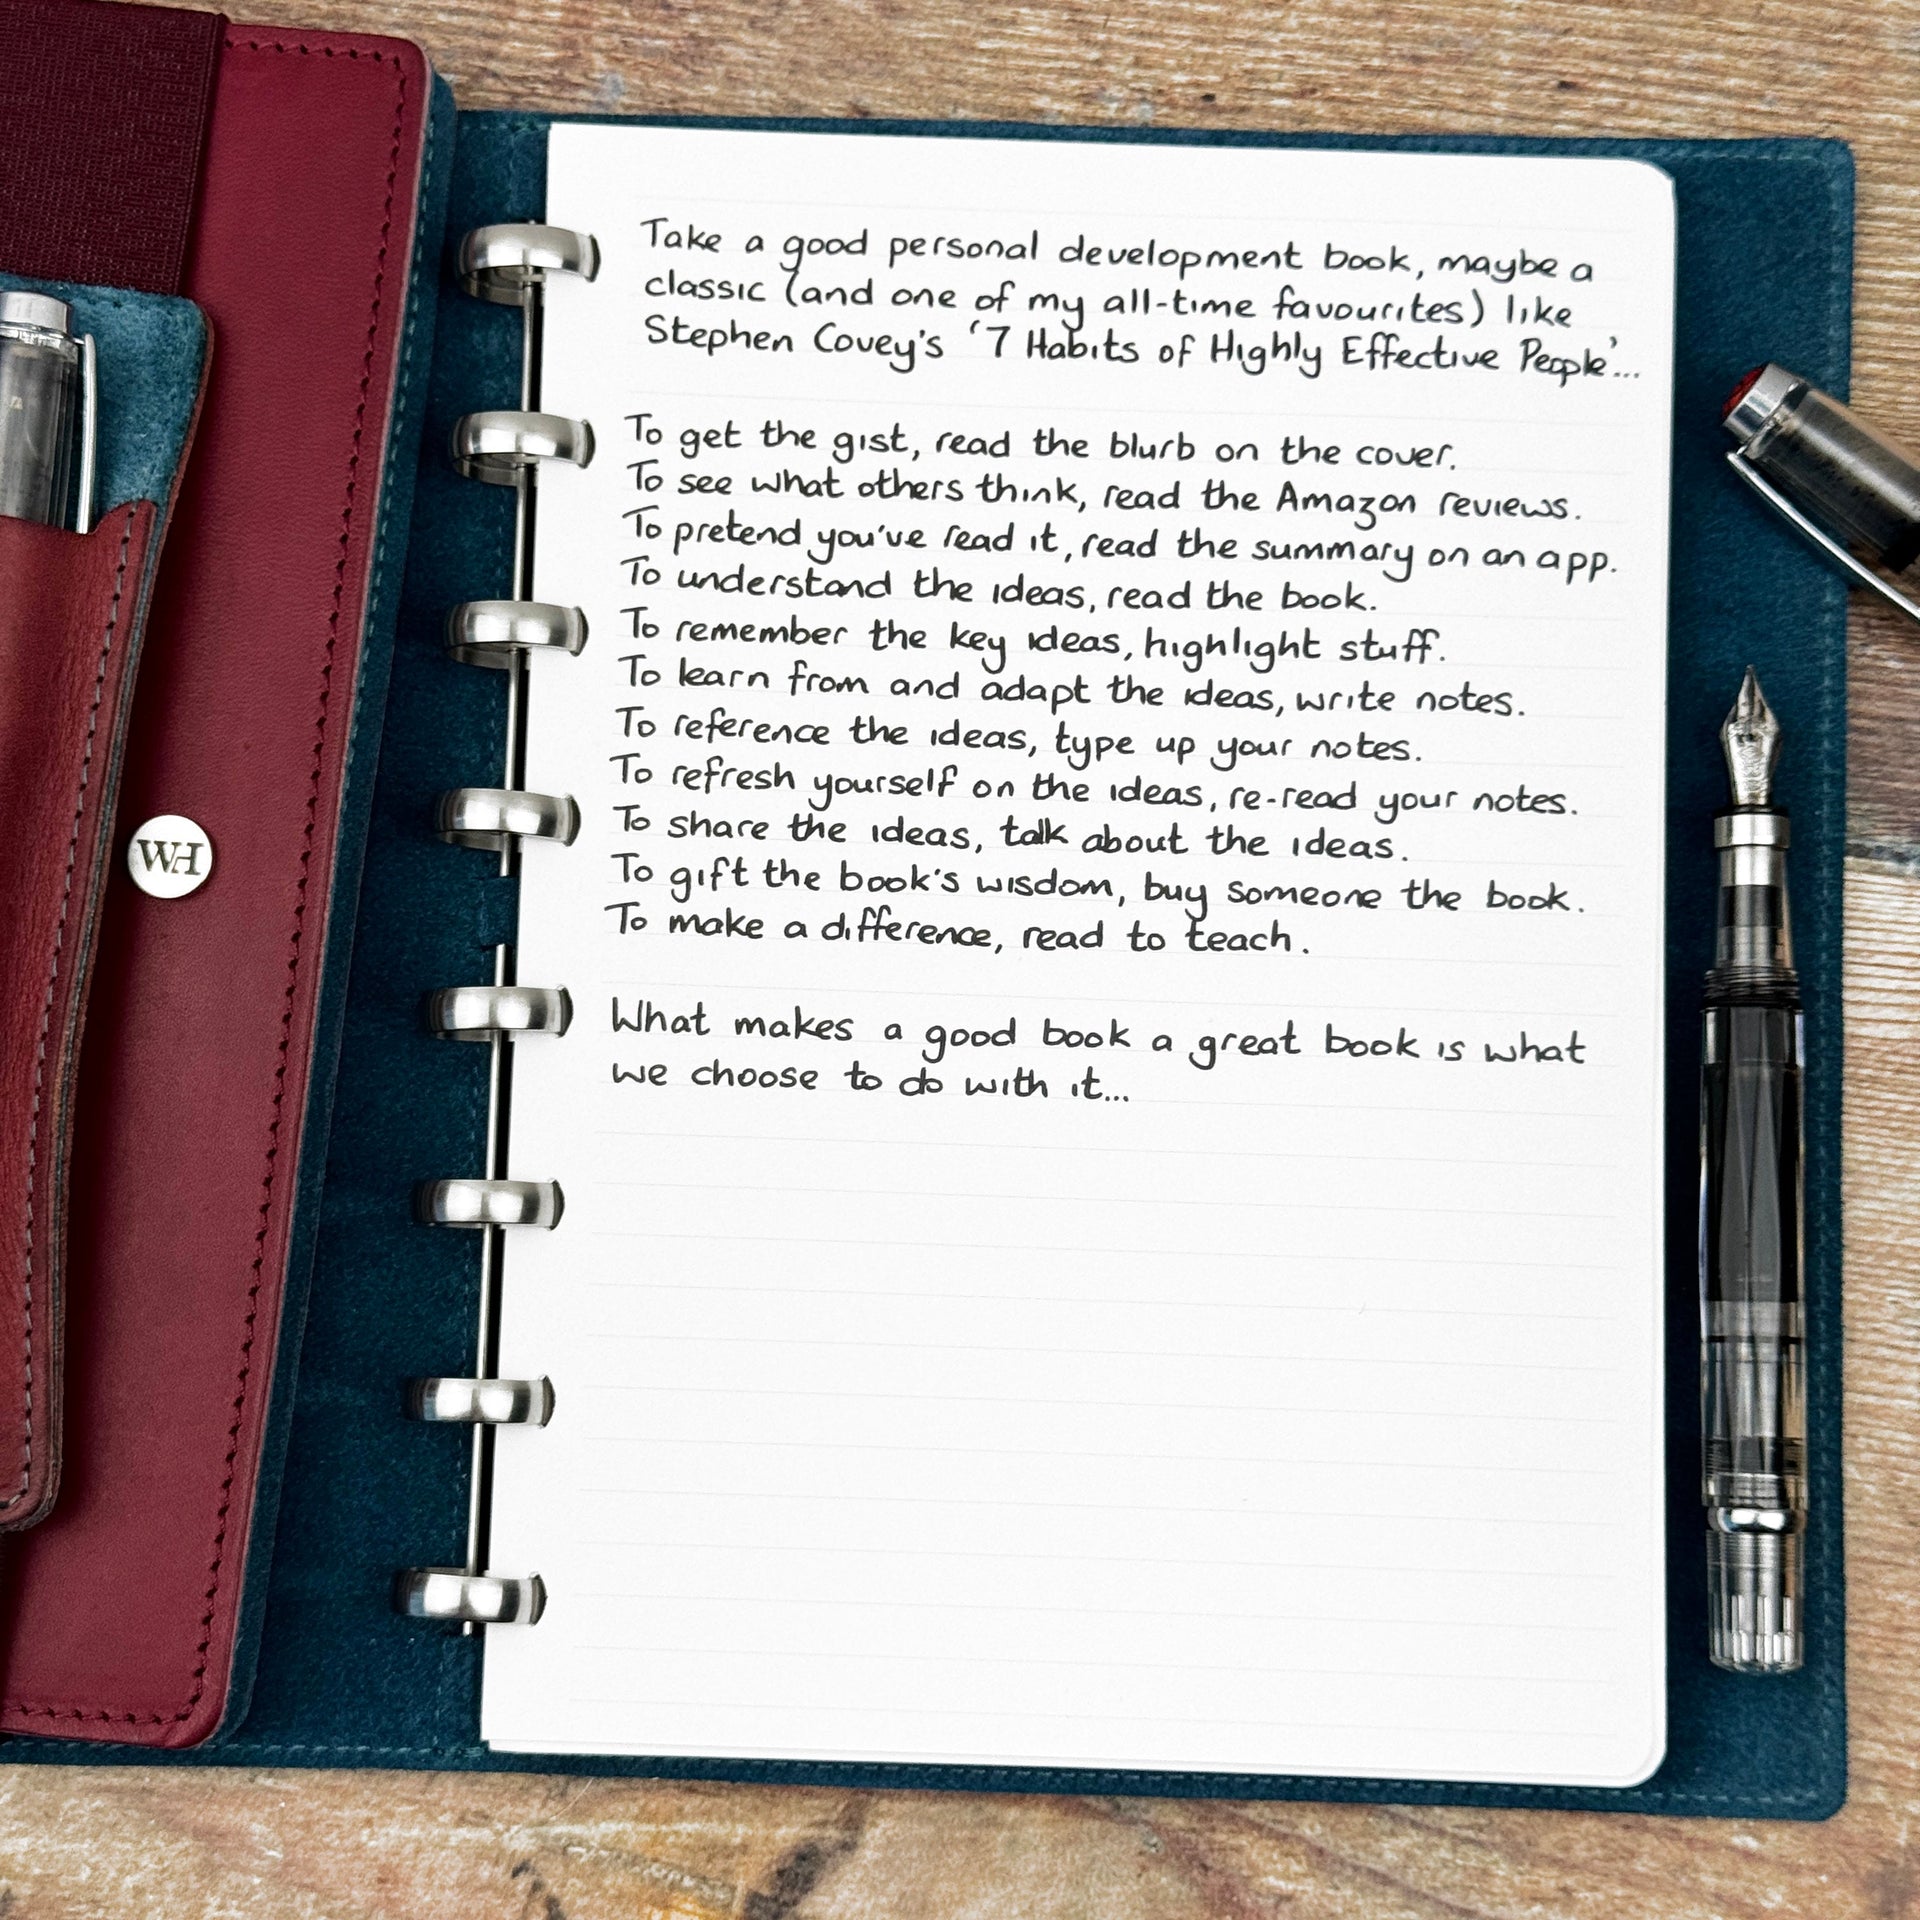 Take a good personal development book, maybe a
classic (and one of my all-time favourites) like
Stephen Covey's '7 Habits of Highly Effective People'...
To get the gist, read the blurb on the cover.
To see what others think, read the Amazon reviews.
To pretend you've read it, read the summary on an app.
To understand the ideas, read the book.
To remember the key ideas, highlight stuff.
To learn from and adapt the ideas, write notes.
To reference the ideas, type up your notes.
To refresh yourself on the ideas, re-read your notes.
To share the ideas, talk about the ideas.
To gift the book's wisdom, buy someone the book.
To make a difference, read to teach.
What makes a good book a great book is what
we choose to do with it...
WH